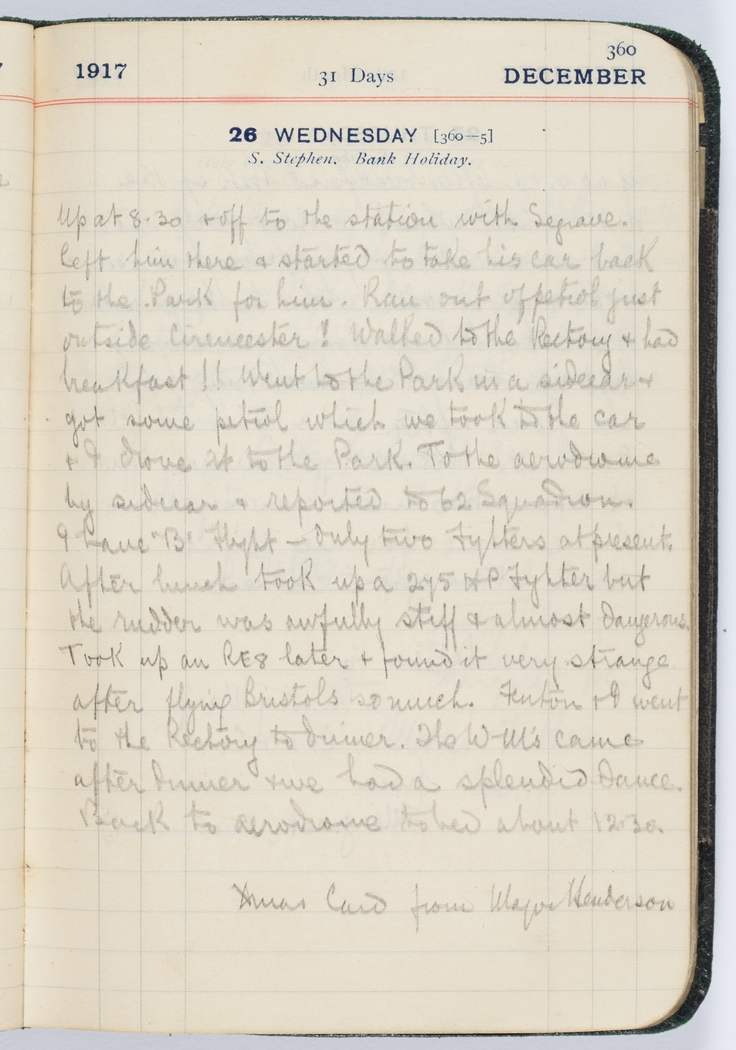 360
1917 31 Days DECEMBER
26 WEDNESDAY [360—5]
S. Stephen. Bank Holiday.
Up at 8.30 & off to the station with Segrave.
Left him there & started to take his car back
to the Park for him. Ran out of petrol just
outside Cirencester! Walked to the Rectory & had
breakfast!! Went to the Park in a sidecar &
got some petrol which we took to the car
& I drove it to the Park. To the aerodrome
by sidecar & reported to 62 Squadron.
I have "B" Flight – only two Fyhters at present.
After lunch took up a 275 HP Fyhter but
the rudder was awfully stiff & almost dangerous.
Took up an RE8 later & found it very strange
after flying Bristols so much. Fenton & I went
to the Rectory to dinner. The W-M's came
after dinner & we had a splendid dance.
Back to aerodrome to bed about 12.30.
Xmas Card from Major Henderson